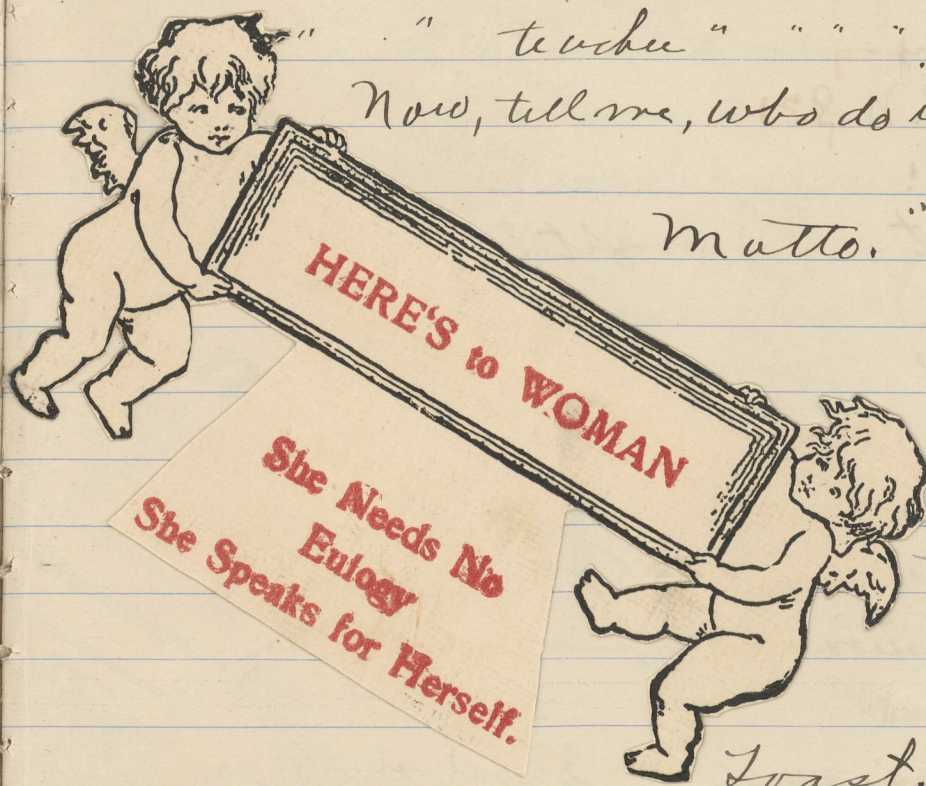 " " teacher " " " "
Now, tell me, who do
Motto. "
HERE'S to WOMAN
She Needs No
Eulogy
She Speaks for Herself.
Toast.